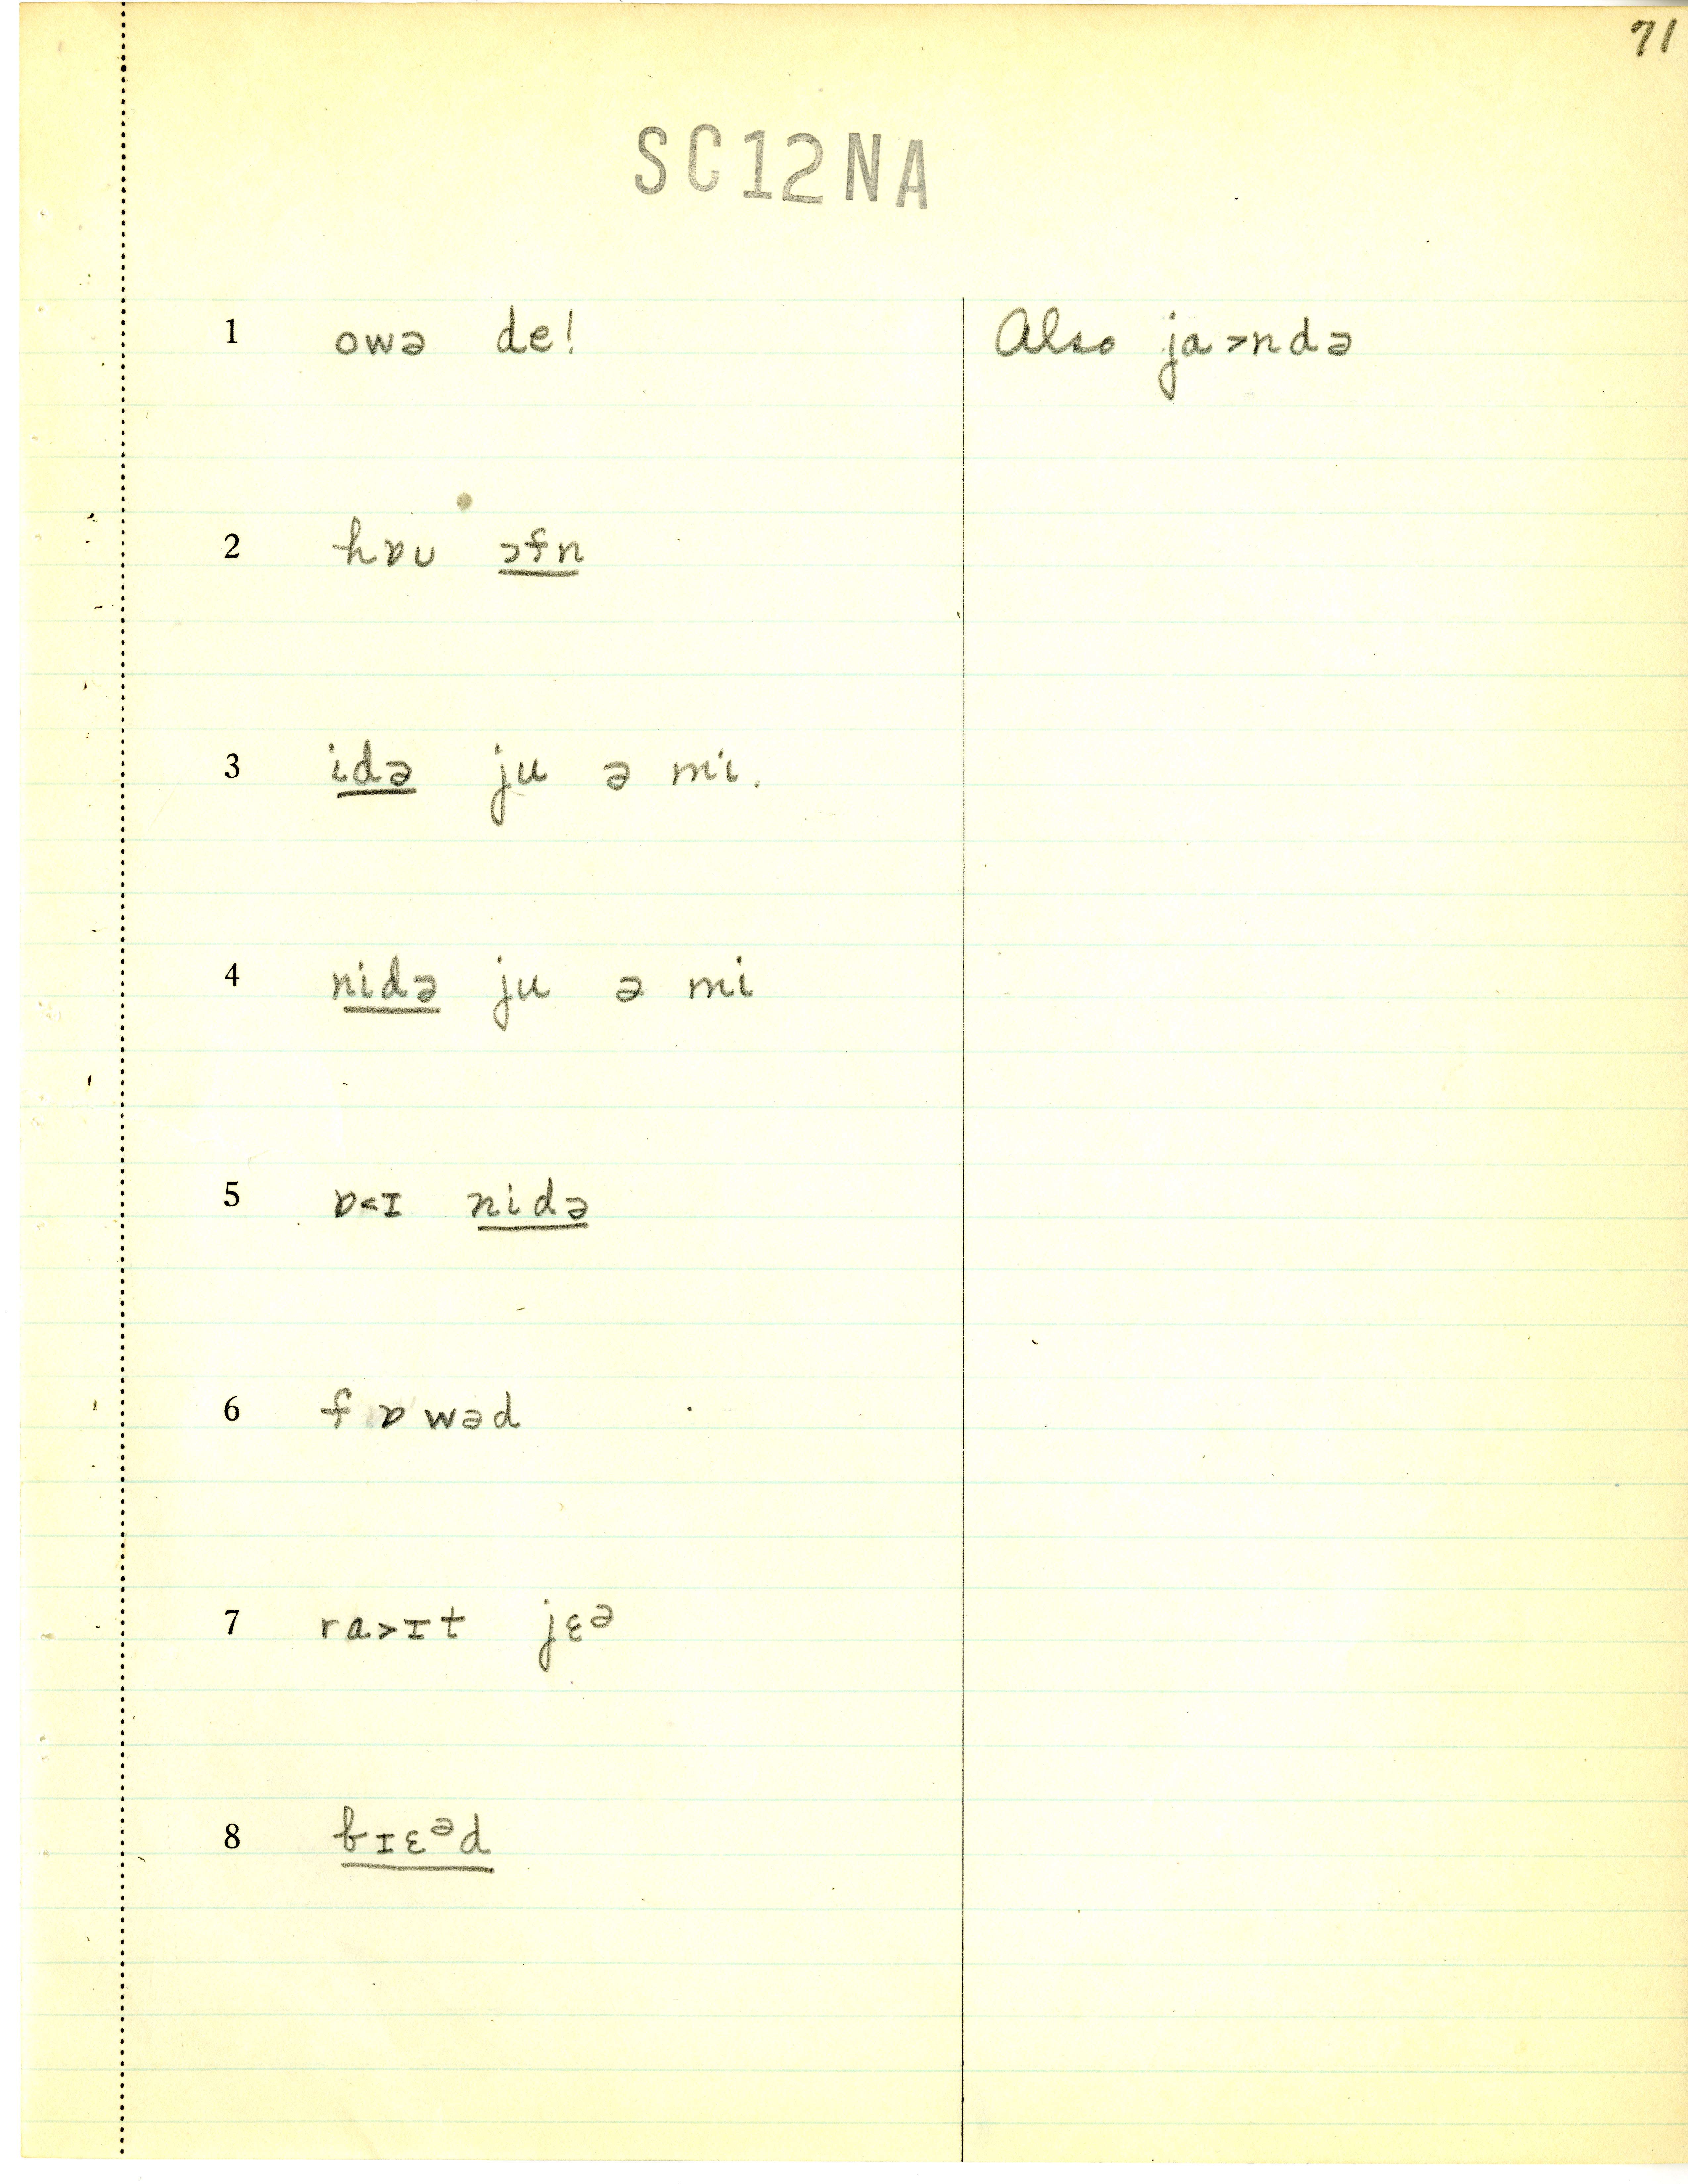 71
SC12NA
1 owə de! Also ja>ndə
2 hɒʋ ɔfn
3 idə ju ə mi.
4 nidə ju ə mi
5 ɒ<ɪ nidə
6 fɒwəd
7 ra>ɪt jɛᵊ
8 bɪɛᵊd